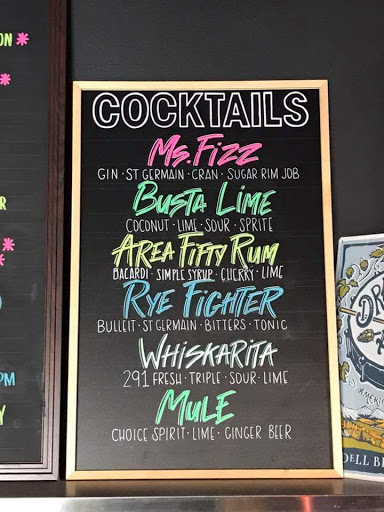 COCKTAILS
Ms. Fizz
GIN · ST GERMAIN · CRAN · SUGAR RIM JOB
BUSTA LIME
COCONUT · LIME · SOUR · SPRITE
AREA FIFTY RUM
BACARDI · SIMPLE SYRUP · CHERRY · LIME
RYE FIGHTER
BULLEIT · ST GERMAIN · BITTERS · TONIC
WHISKARITA
291 FRESH · TRIPLE · SOUR · LIME
MULE
CHOICE SPIRIT · LIME · GINGER BEER
ON *
*
R
*
*
PM
Y